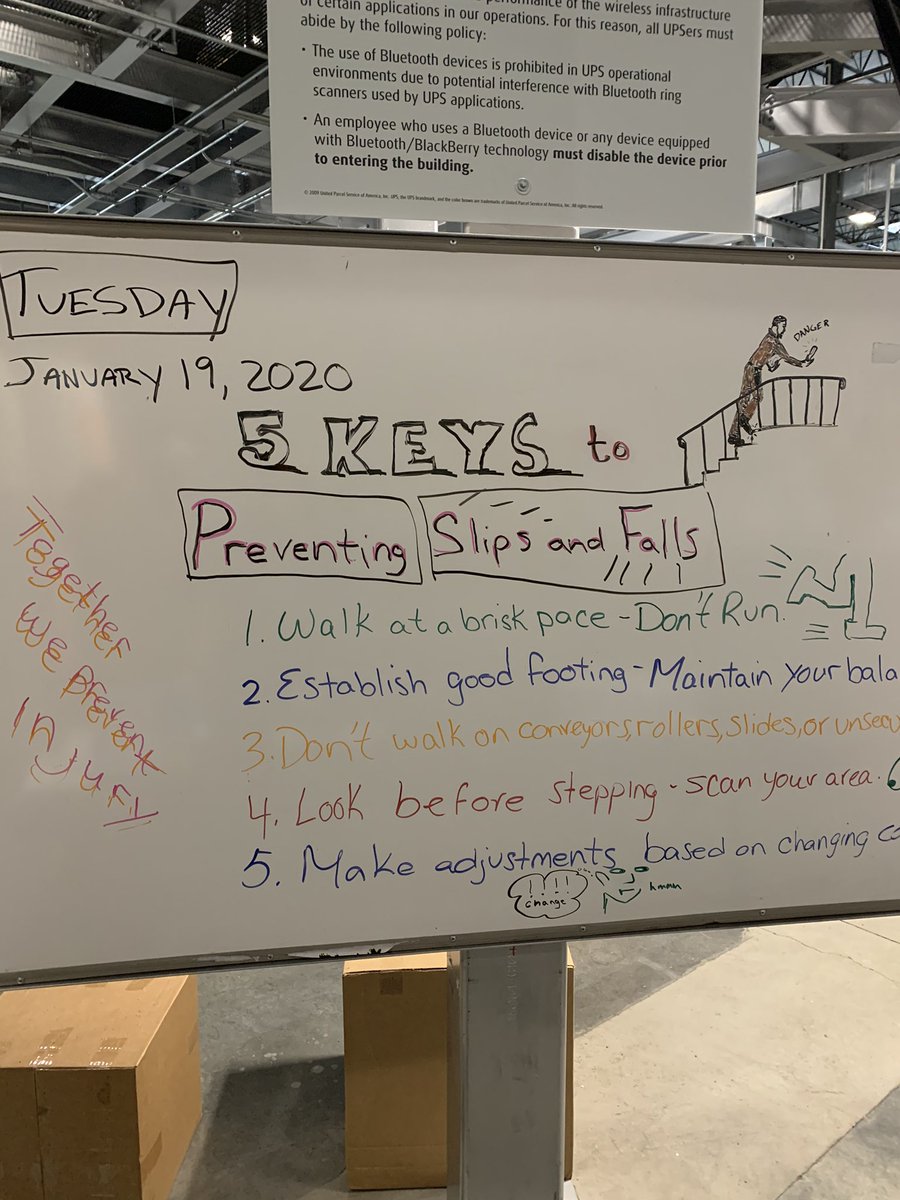 performance of the wireless infrastructure
of certain applications in our operations. For this reason, all UPSers must
abide by the following policy:
• The use of Bluetooth devices is prohibited in UPS operational
environments due to potential interference with Bluetooth ring
scanners used by UPS applications.
• An employee who uses a Bluetooth device or any device equipped
with Bluetooth/BlackBerry technology must disable the device prior
to entering the building.
© 2009 United Parcel Service of America, Inc. UPS, the UPS brandmark, and the color brown are trademarks of United Parcel Service of America, Inc. All rights reserved.
TUESDAY
JANUARY 19, 2020
DANGER
5 KEYS to
Preventing Slips and Falls
Together
WE prevent
Injury
1. Walk at a brisk pace - Don't Run.
2. Establish good footing - Maintain your bala
3. Don't walk on conveyors, rollers, slides, or unsecu
4. Look before stepping - scan your area.
5. Make adjustments based on changing co
!!!!
change
hmmn